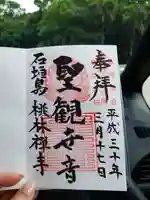 奉拝
平成三十年
月十七日
聖観世音
石垣島 桃林禅寺